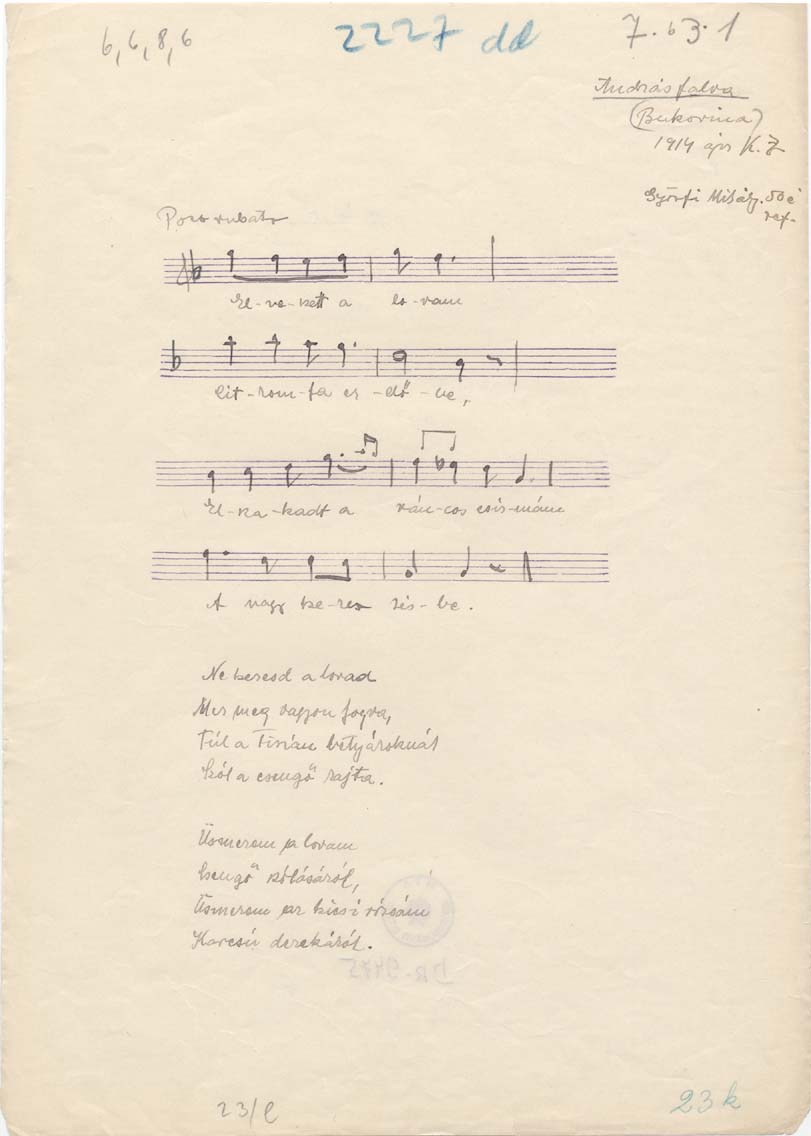 6, 6, 8, 6
2227 dd
7. b3. 1
Andrásfalva
(Bukovina)
1914 ápr K. Z
Györfi Mihály. 50 é
ref.
Poco rubato
El-ve-szett a lo-vam
Cit-rom-fa er-dő-be,
El-sza-kadt a rán-cos csiz-mám
A nagy ke-re-sés-be.
Ne keresd a lovad
Mer meg vagyon fogva,
Túl a Tiszán betyároknál
Szól a csengő rajta.
Üsmerem a lovam
Csengő szólásáról,
Üsmerem az kicsi rózsám
Karcsú derekáról.
23/l
23 k